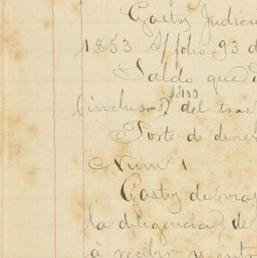 Gastos Judicia
1853 S/ folio 93 d
Saldo que
$100
(inclus. 2 del tras
Porte de diner
Num. 1
Gastos de viaj
la diligencia, de
á recibir y entre